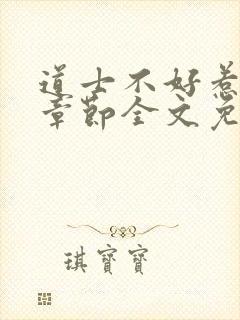 道士不好惹
章節全文免
琪寶寶